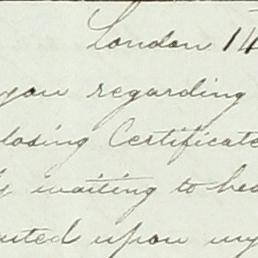 London 14
you regarding
closing Certificate
waiting to hea
upon my